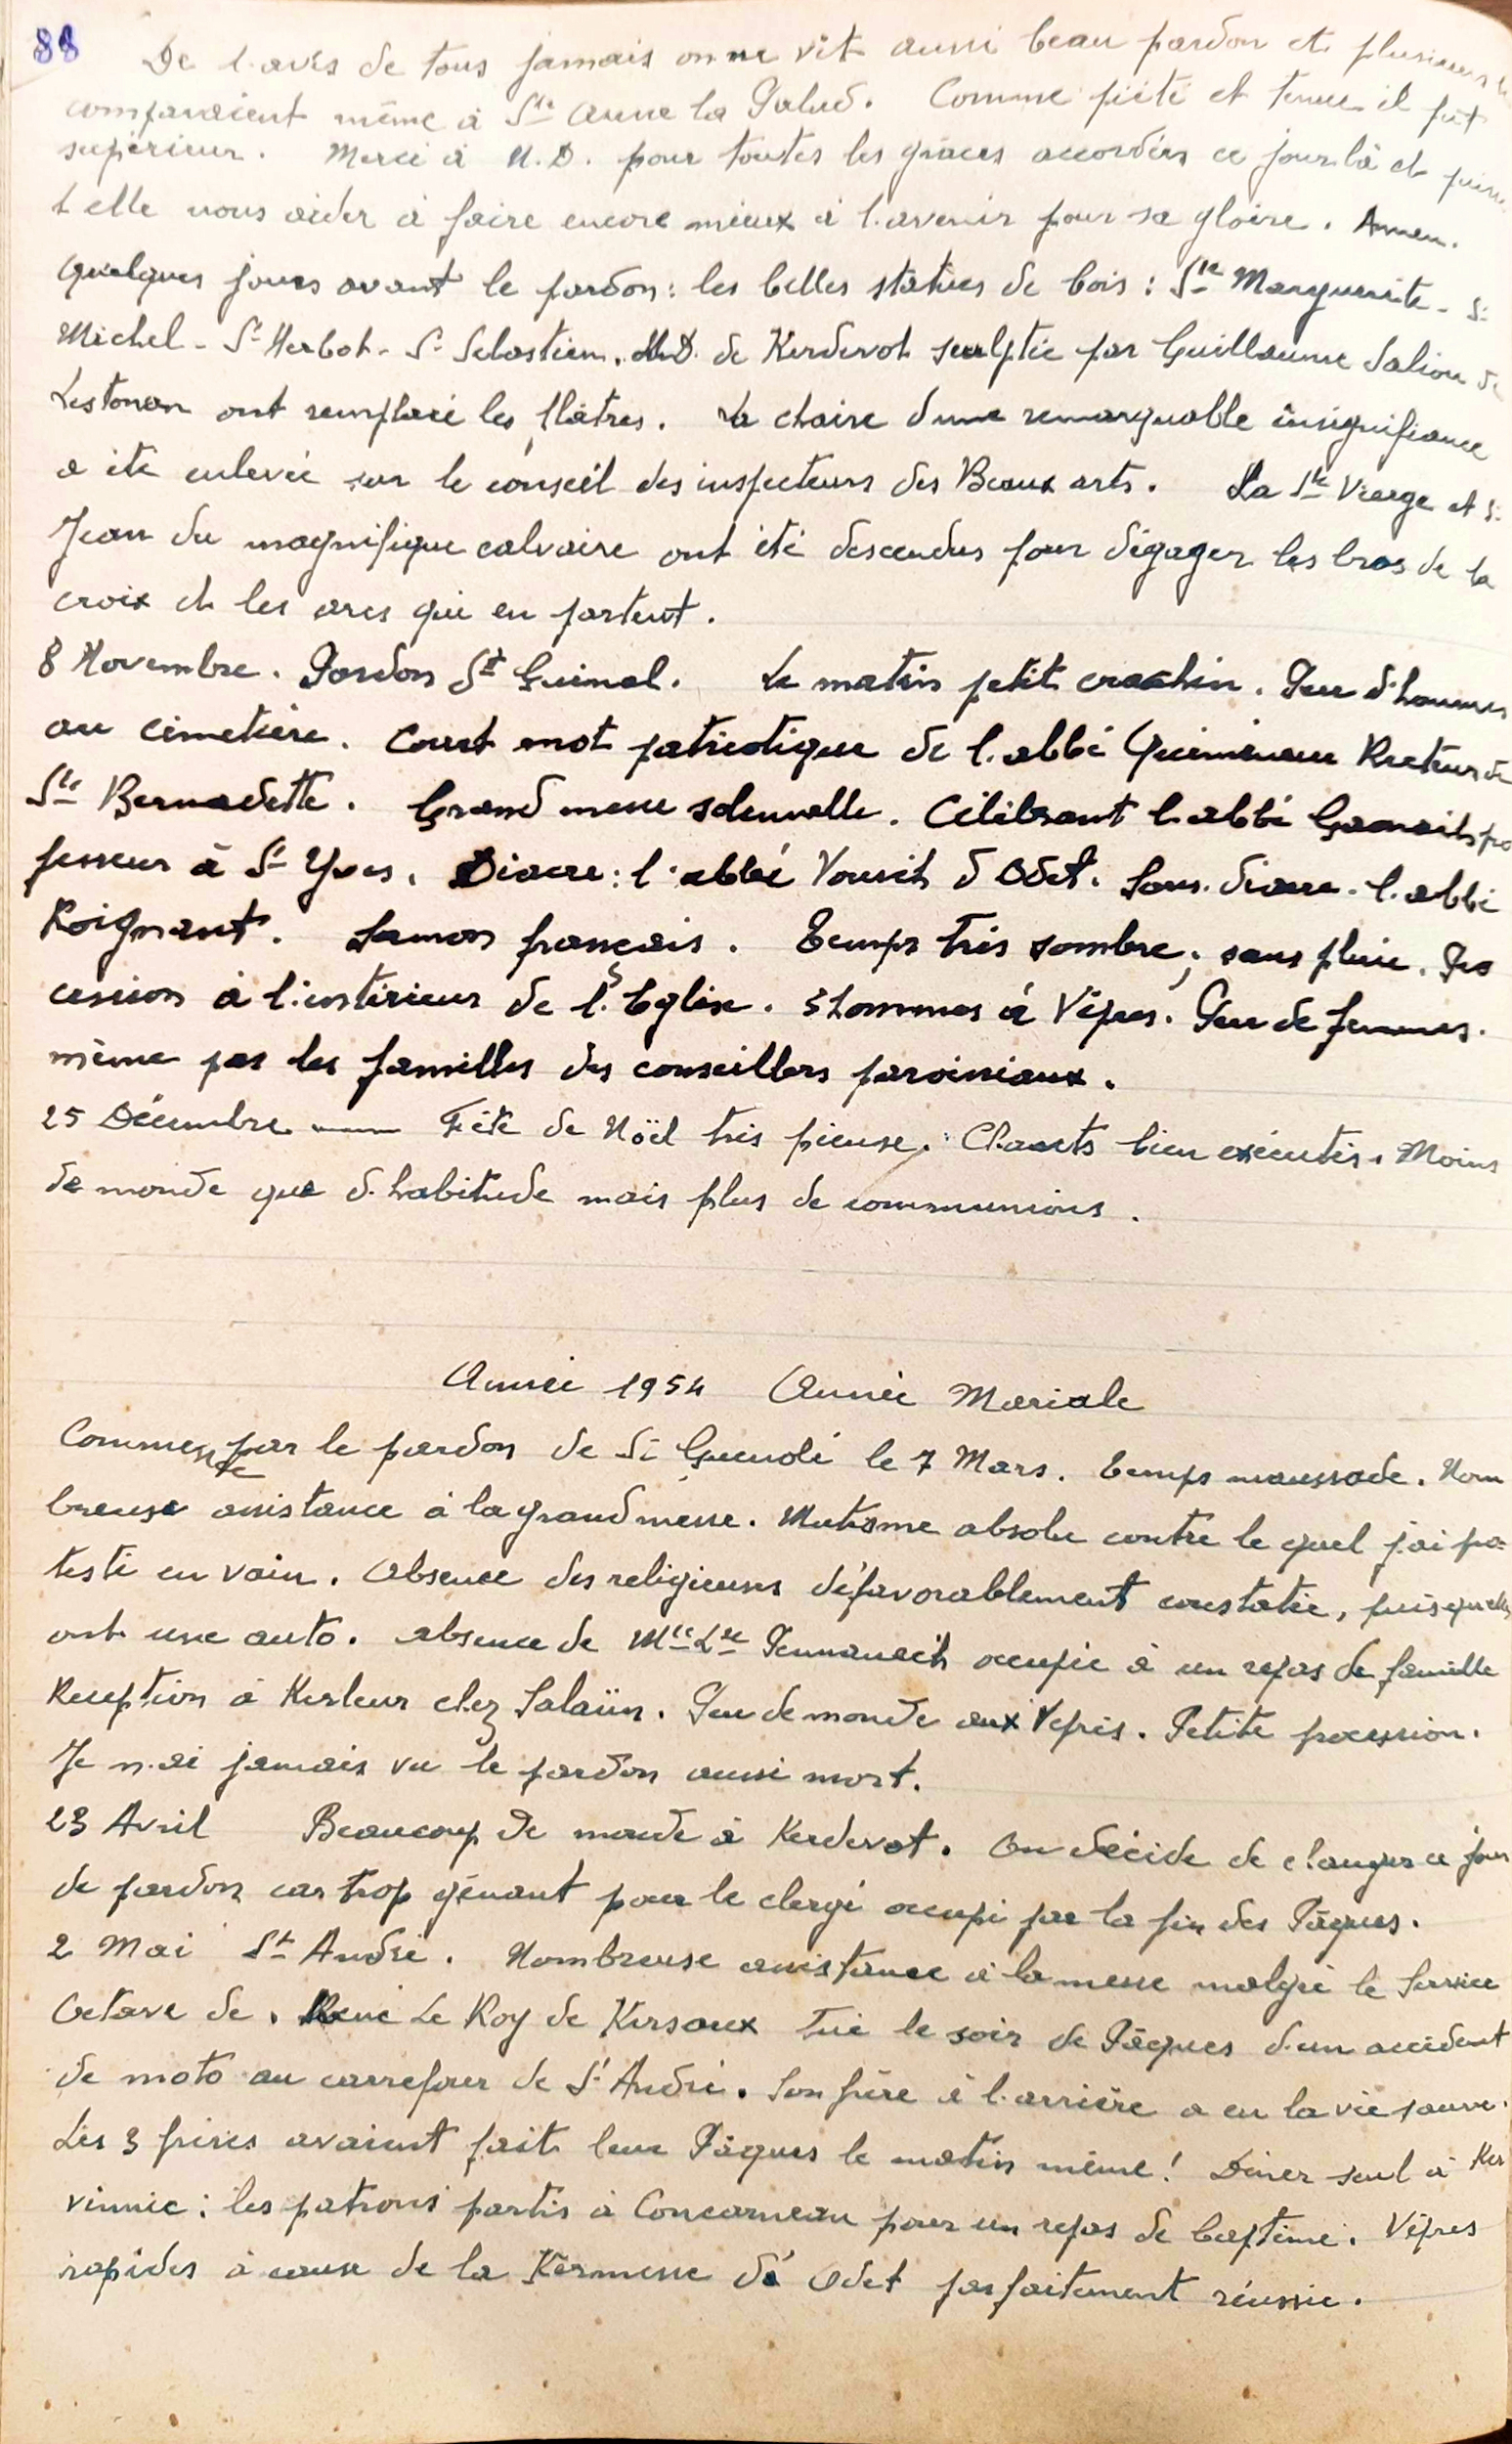 88
De l'avis de tous jamais on ne vit aussi beau pardon et plusieurs le
comparaient même à Ste Anne la Palud. Comme piété et tenue il fut
supérieur. Merci à N.D. pour toutes les grâces accordées ce jour là et puisse
t elle nous aider à faire encore mieux à l'avenir pour sa gloire. Amen.
Quelques jours avant le pardon : les belles statues de bois : Ste Marguerite - St
Michel - St Herbot - St Sebastien. N.D. de Kerdevot sculptée par Guillaume Saliou de
Lestonan ont remplacé les plâtres. La chaire d'une remarquable insignifiance
a été enlevée sur le conseil des inspecteurs des Beaux arts. La Ste Vierge et St
Jean du magnifique calvaire ont été descendus pour dégager les bras de la
croix et les arcs qui en partent.
8 Novembre. Pardon St Guinal. Le matin petit crachin. Peu d'hommes
au cimetière. Court mot patriotique de l'abbé Quéméneur Recteur de
Ste Bernadette. Grand messe solennelle. Célébrant l'abbé pro
fesseur à St Yves. Diacre : l'abbé d'Odet. Sous-diacre - l'abbé
Roignant. Sermon français. Temps très sombre, sans pluie. Pro
cession à l'intérieur de l'Eglise. 5 hommes à Vêpres. Peu de femmes.
même pas les familles des conseillers paroissiaux.
25 Décembre — Fête de Noël très pieuse. Chants bien exécutés. Moins
de monde que d'habitude mais plus de communions.
Année 1954 Année Mariale
Commence par le pardon de St Guénolé le 7 Mars. Temps maussade. Nom
breuse assistance à la grand messe. Mutisme absolu contre le quel j'ai pro
testé en vain. Absence des religieuses défavorablement constatée, puisqu'elles
ont une auto. Absence de Mce Lse Pennanech occupée à un repas de famille
Réception à Kerleur chez Salaün. Peu de monde aux Vêpres. Petite procession.
Je n'ai jamais vu le pardon aussi mort.
23 Avril Beaucoup de monde à Kerdevot. On décide de changer ce jour
de pardon car trop gênant pour le clergé occupé par la fin des Pâques.
2 Mai St André. Nombreuse assistance à la messe malgré le Service
Octave de René Le Roy de Kersaux tué le soir de Pâques d'un accident
de moto au carrefour de St André. Son frère à l'arrière a eu la vie sauve.
Les 3 frères avaient fait leur Pâques le matin même ! Diner seul à Ker
vinnic : les patrons partis à Concarneau pour un repas de baptême. Vêpres
rapides à cause de la Kermesse d'Odet parfaitement réussie.